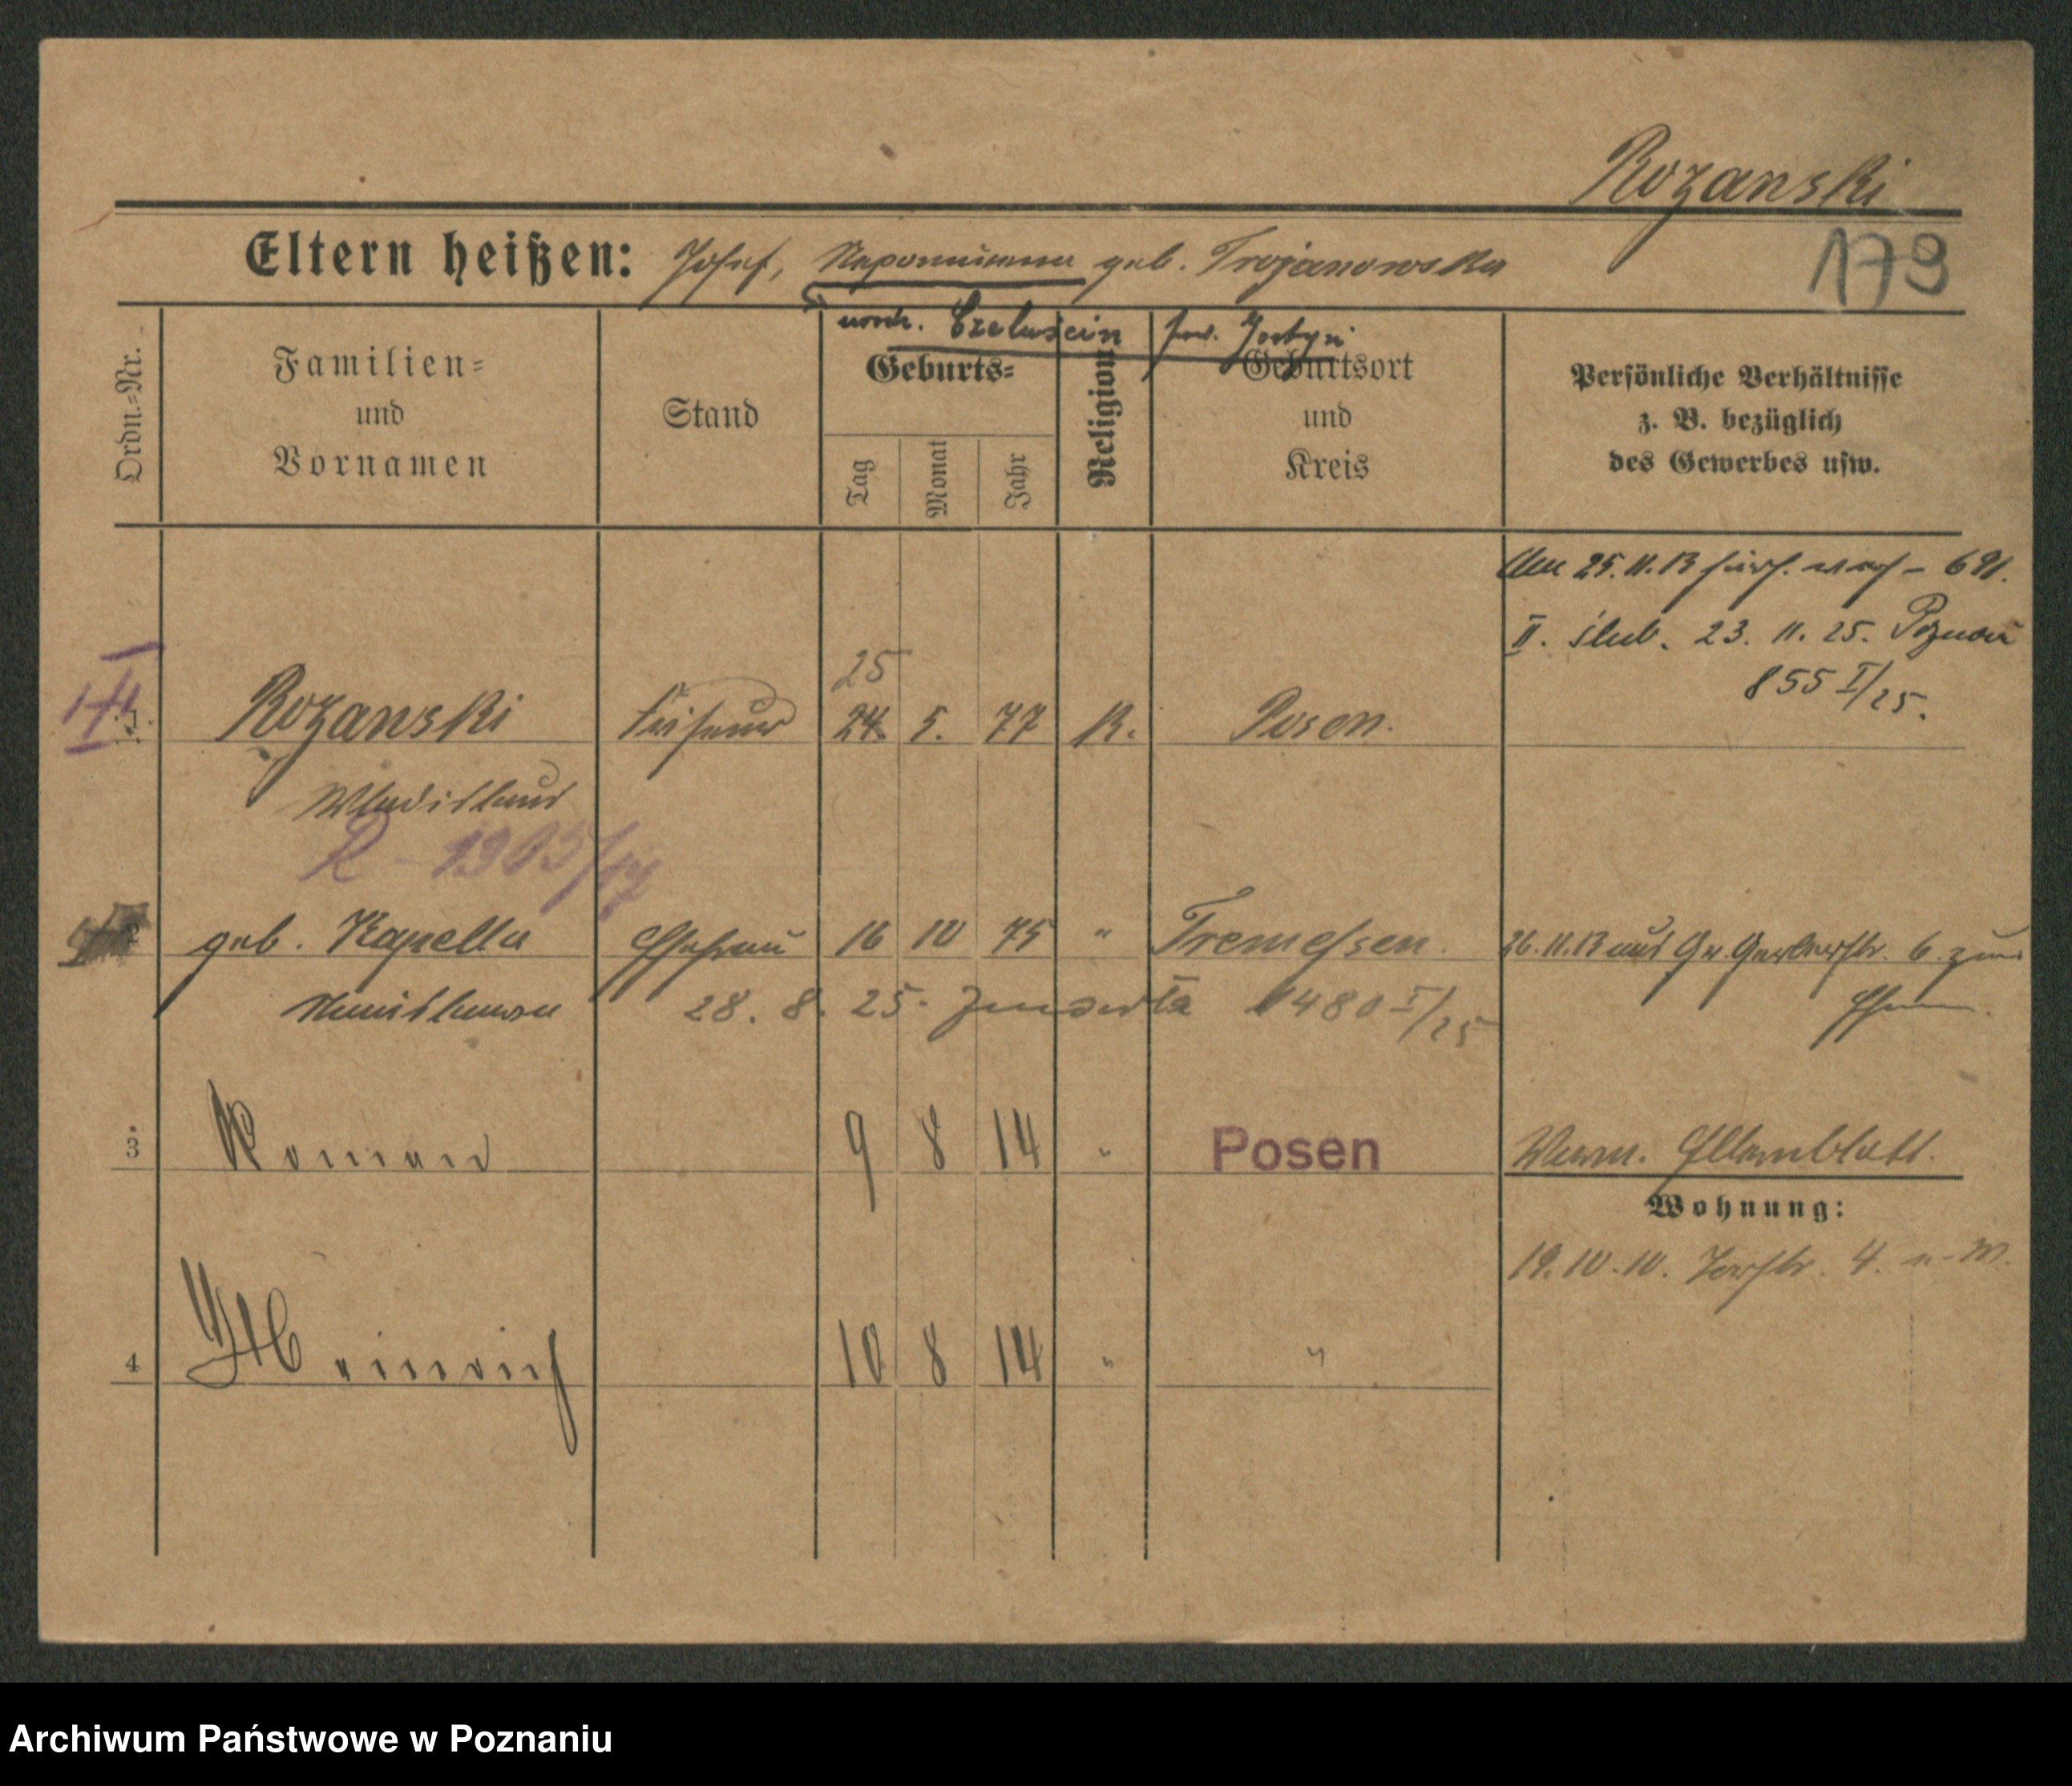 Rozanski
179
Eltern heißen: Josef, Nepomucena geb. Trojanowska
urodz. Czeluscin pow. Gostyń
Ordn.-Nr.
Familien-
und
Vornamen
Stand
Geburts-
Tag
Monat
Jahr
Religion
Geburtsort
und
Kreis
Persönliche Verhältnisse
z. B. bezüglich
des Gewerbes usw.
25.11.13 – 691.
II. ślub. 23. 11. 25. Poznań
855 I/25.
25
1. Rozanski Friseur 24. 5. 77 K. Posen.
Wladislaus
R - 1905/14
2 geb. Kapella Ehefrau 16 10 75 " Tremessen. 26.11.13 aus Gr. Gerberstr. 6. zum
Stanislawa 28. 8. 25. 1480 I/25 Ehem.
3 Roman 9 8 14 " Posen Verm. Elternblatt.
Wohnung:
19.10.10. Torstr. 4.
4 Heinrich 10 8 14 " "
Archiwum Państwowe w Poznaniu